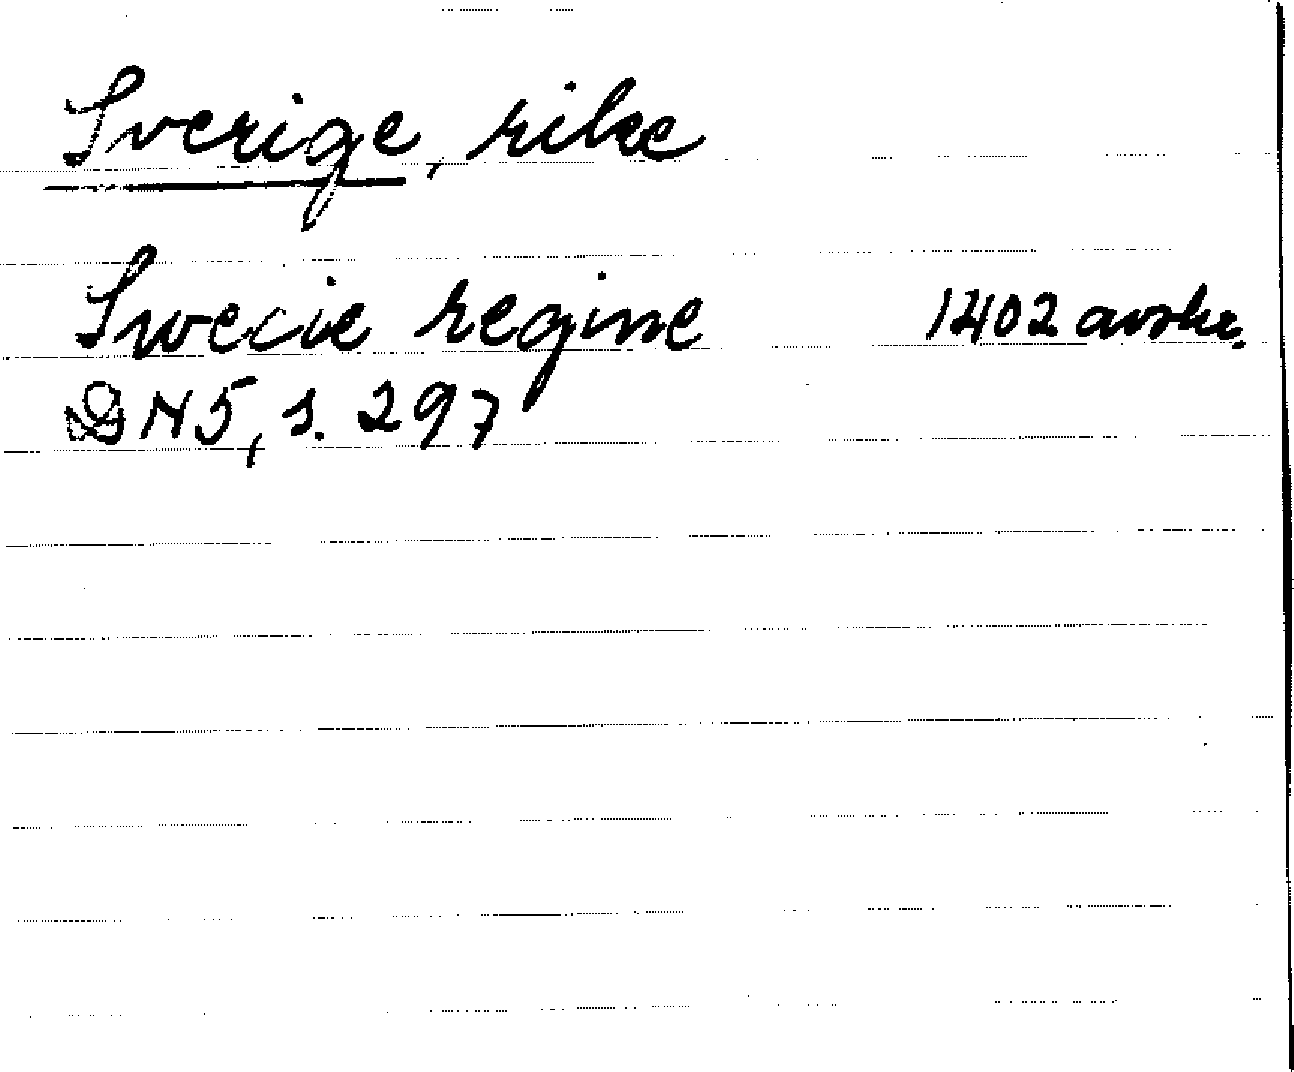 Sverige, rike
Swecie regine 1402 avskr.
DN5, s. 297